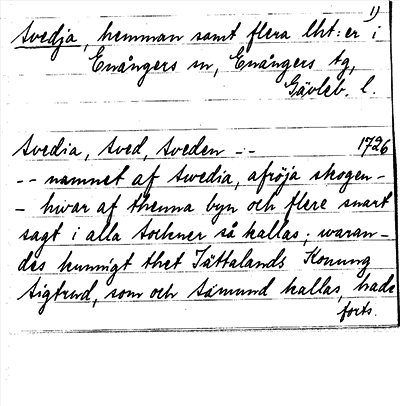 1)
Svedja, hemman samt flera lht:er i
Enångers sn, Enångers tg,
Gävleb. l.
Svedia, Sved, Sveden -- 1726
-- namnet af Svedia, afröja skogen -
- hwar af thenna byn och flere snart
sagt i alla Sockner så kallas; waran-
des kunnigt thet Jättalands Konung
Sigtrud, som och Sämund kallas, hade
forts.